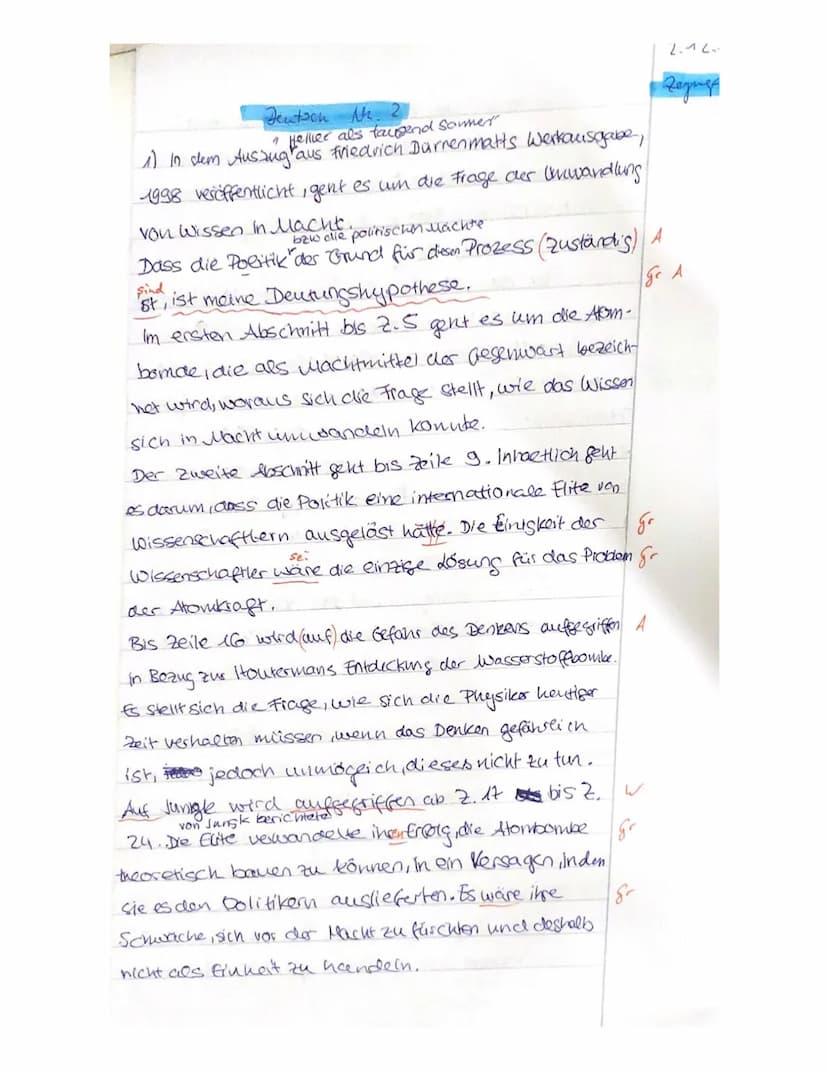 2.12.
Deutsch Nr. 2
"Heller als tausend Sonnen"
1) In dem Auszug aus Friedrich Dürrenmatts Werkausgabe,
1998 veröffentlicht, geht es um die Frage der Umwandlung
von Wissen in Macht.
bzw die politischen Mächte
Dass die Politik der Grund für diesen Prozess (zuständig) A
sind gr A
ist, ist meine Deutungshypothese.
Im ersten Abschnitt bis Z.5 geht es um die Atom-
bombe, die als Machtmittel der Gegenwart bezeich-
net wird, woraus sich die Frage stellt, wie das Wissen
sich in Macht umwandeln konnte.
Der zweite Abschnitt geht bis Zeile 9. Inhaltlich geht
es darum, dass die Politik eine internationale Elite von
Wissenschaftlern ausgelöst hätte. Die Einigkeit der gr
sei
Wissenschaftler wäre die einzige Lösung für das Problem gr
der Atomkraft.
Bis Zeile 16 wird (auf) die Gefahr des Denkens aufgegriffen A
in Bezug zur Houtermans Entdeckung der Wasserstoffbombe.
Es stellt sich die Frage, wie sich die Physiker heutiger
Zeit verhalten müssen, wenn das Denken gefährlich
ist, jedoch unmögeich, dieses nicht zu tun.
Auf Jungk wird aufgegriffen ab Z. 17 bis Z. W
von Jungk berichtete
24. Die Elite verwandelte ihren Erfolg, die Atombombe gr
theoretisch bauen zu können, in ein Versagen, indem
sie es den Politikern auslieferten. Es wäre ihre gr
Schwäche, sich vor der Macht zu fürchten und deshalb
nicht als Einheit zu handeln.